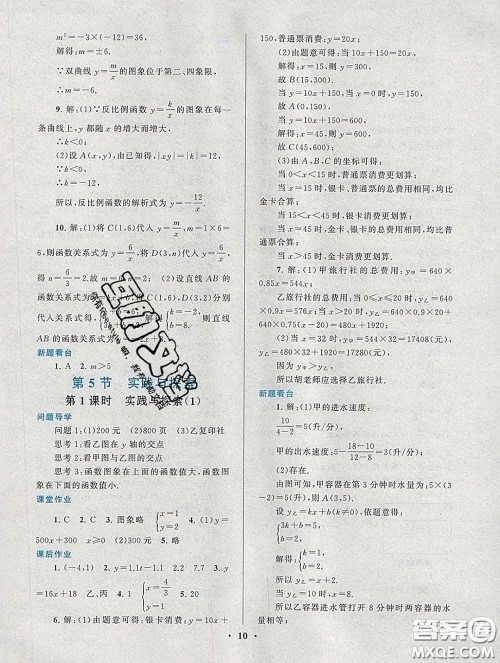 m²=-3×(-12)=36,
解得:m=±6.
∵双曲线y=m/x的图象位于第二、四象限,
∴m=-6.
9. 解:(1)∵反比例函数y=k/x的图象在每一
条曲线上,y都随x的增大而增大,
∴k<0;
(2)设A(x,y),由已知得,|xy|=|k|=12,
∵k<0,
∴k=-12.
所以,反比例函数的解析式为y=-12/x.
10. 解:(1)将C(1,6)代入y=m/x,m=1×6=
6,则函数关系式为y=6/x,将D(3,n)代入y=6/x,
得n=6/3=2.故m=6,n=2.(2)设直线AB的
新题看台
1. A 2. m>5
第5节 实践与探索
第1课时 实践与探索(1)
问题导学
问题1:(1)200元 (2)乙复印社
思考1:看乙图在y轴的交点
思考2:看甲图与乙图的交点
思考3:函数图象在上面的函数值大,函数图象
在下面的函数值小.
课堂作业
1. C 2. C 3. 图象略 {x=1 y=2 4. (1)y=
500x+300 x≥0 (2)2300元 5. 略
课后作业
1. (-4,1) 2. y=1.1x 1.1 2.2 7.7 3. y
=16x+18 乙,丙 4. {x=1 y=1 5. 略 6. 略
7. 解:(1)由题意可得:银卡消费:y=10x+
150,普通票消费:y=20x;
(2)由题意可得:当10x+150=20x,
解得:x=15,则y=300,
故B(15,300).
当y=10x+150,x=0时,y=150,
故A(0,150).
当y=10x+150=600,
解得:x=45,则y=600,
故C(45,600);
(3)由A,B,C的坐标可得:
当0<x<15时,普通票消费更划算;
当x=15时,银卡、普通票的总费用相同,均比
金卡合算;
当15<x<45时,银卡消费更划算;
当x=45时,金卡、银卡的总费用相同,均比
普通票合算;
当x>45时,金卡消费更划算.
8. 解:(1)甲旅行社的总费用:y甲=640×
0.85x=544x;
乙旅行社的总费用:当0≤x≤20时,y乙=
640×0.9x=576x;当x>20时,y乙=640×0.9×
20+640×0.75(x-20)=480x+1920;
(2)当x=32时,y甲=544×32=17408(元),
y乙=480×32+1920=17280,
因为y甲>y乙,所以胡老师应选择乙旅行社.
新题看台
1. 解:(1)甲的进水速度:
5/1=5(升/分),
甲的出水速度:5-(18-10)/(12-8)=3(升/分);
(2)存在.
由图可知,甲容器的第3分钟时水量为:5×
(3-2)=5(升).则A(3,5).
设y乙=kx+b(k≠0),依题意得:
{3k+b=5, b=2,
解得:{k=1, b=2,
∴y乙=x+2.
所以乙容器进水管打开8分钟时两容器的水
量相等;
· 10 ·
答案圈
MXQE.COM